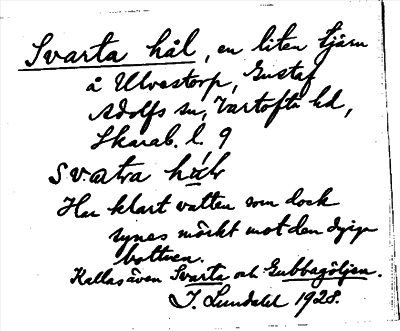 Svarta hål, en liten tjärn
å Ulvestorp, Gustaf
Adolfs sn, Vartofta hd,
Skarab. l. 9
svatra
Har klart vatten som dock
synes mörkt mot den dyiga
bottnen.
Kallas även Svarta och Gubbagöljen.
J. Lundahl 1928.